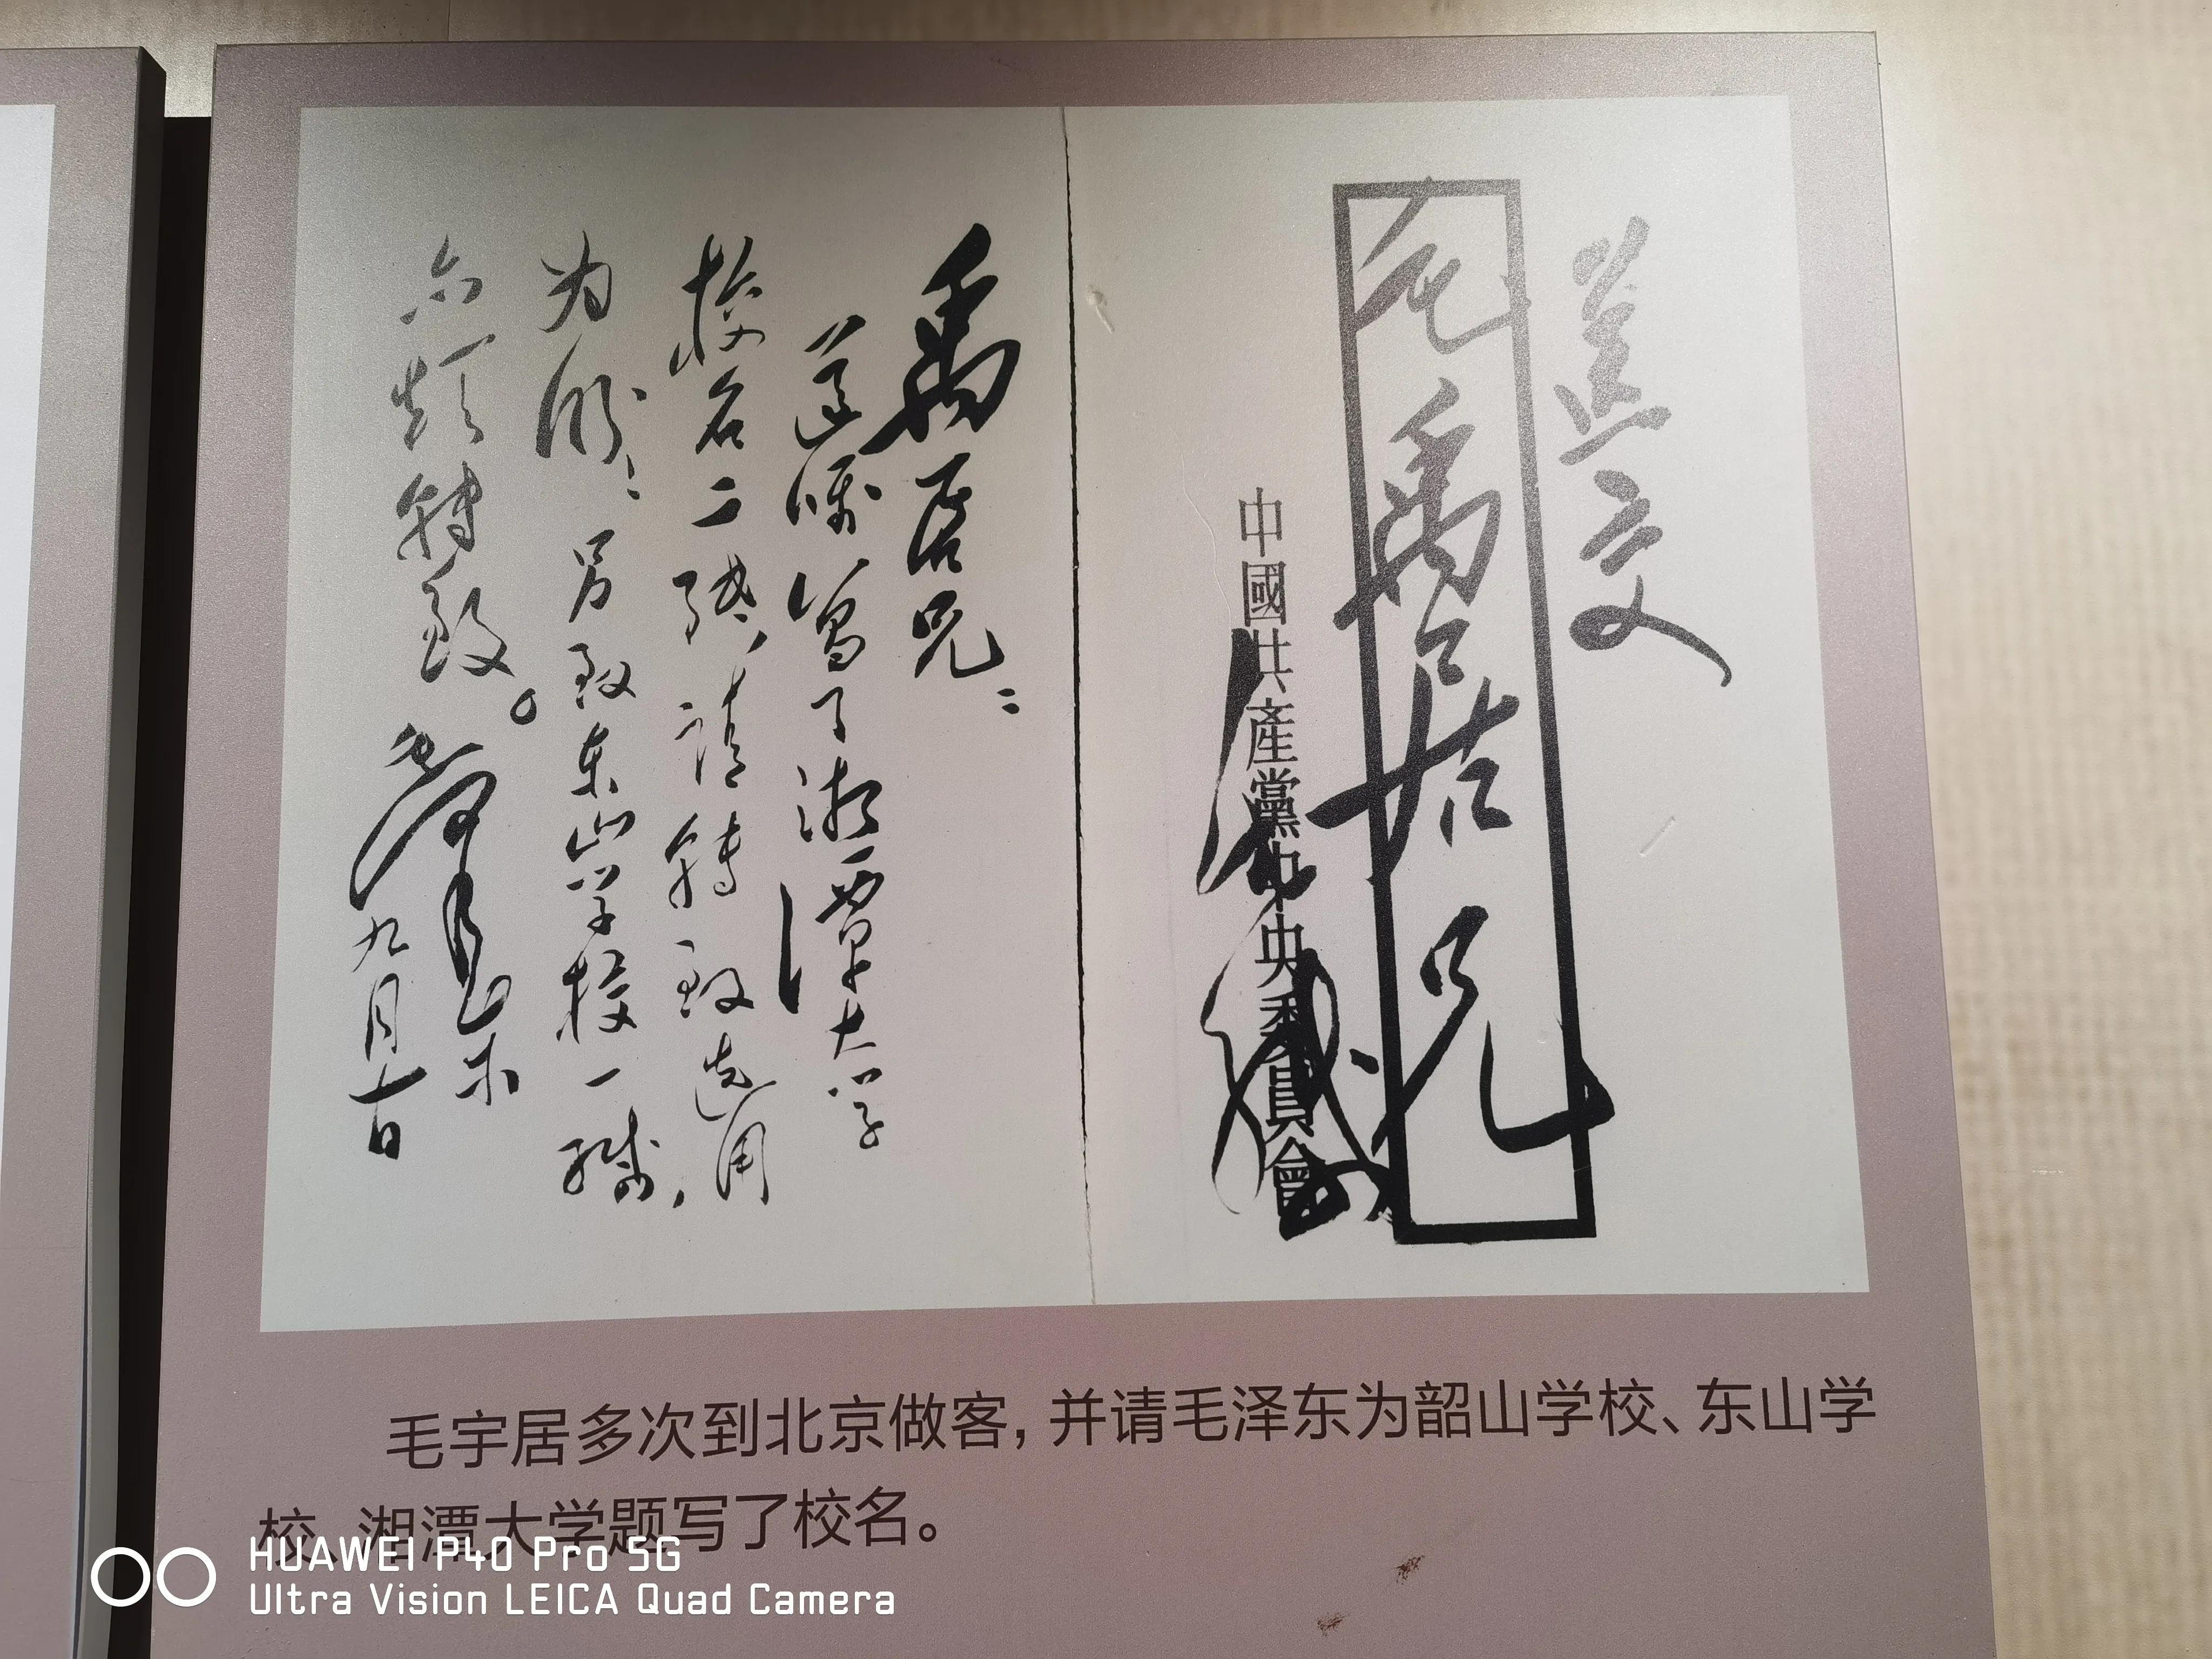 送交
毛禹居兄
中國共產黨中央委員會
禹居兄：
遵嘱写了湘潭大学
校名二纸，请转致选用
为盼。另致东山学校一纸，
亦烦转致。
毛泽东
九月十日
毛宇居多次到北京做客，并请毛泽东为韶山学校、东山学
校、湘潭大学题写了校名。
HUAWEI P40 Pro 5G
Ultra Vision LEICA Quad Camera